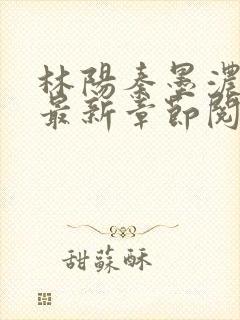 林陽秦墨濃
最新章節閱
甜蘇酥